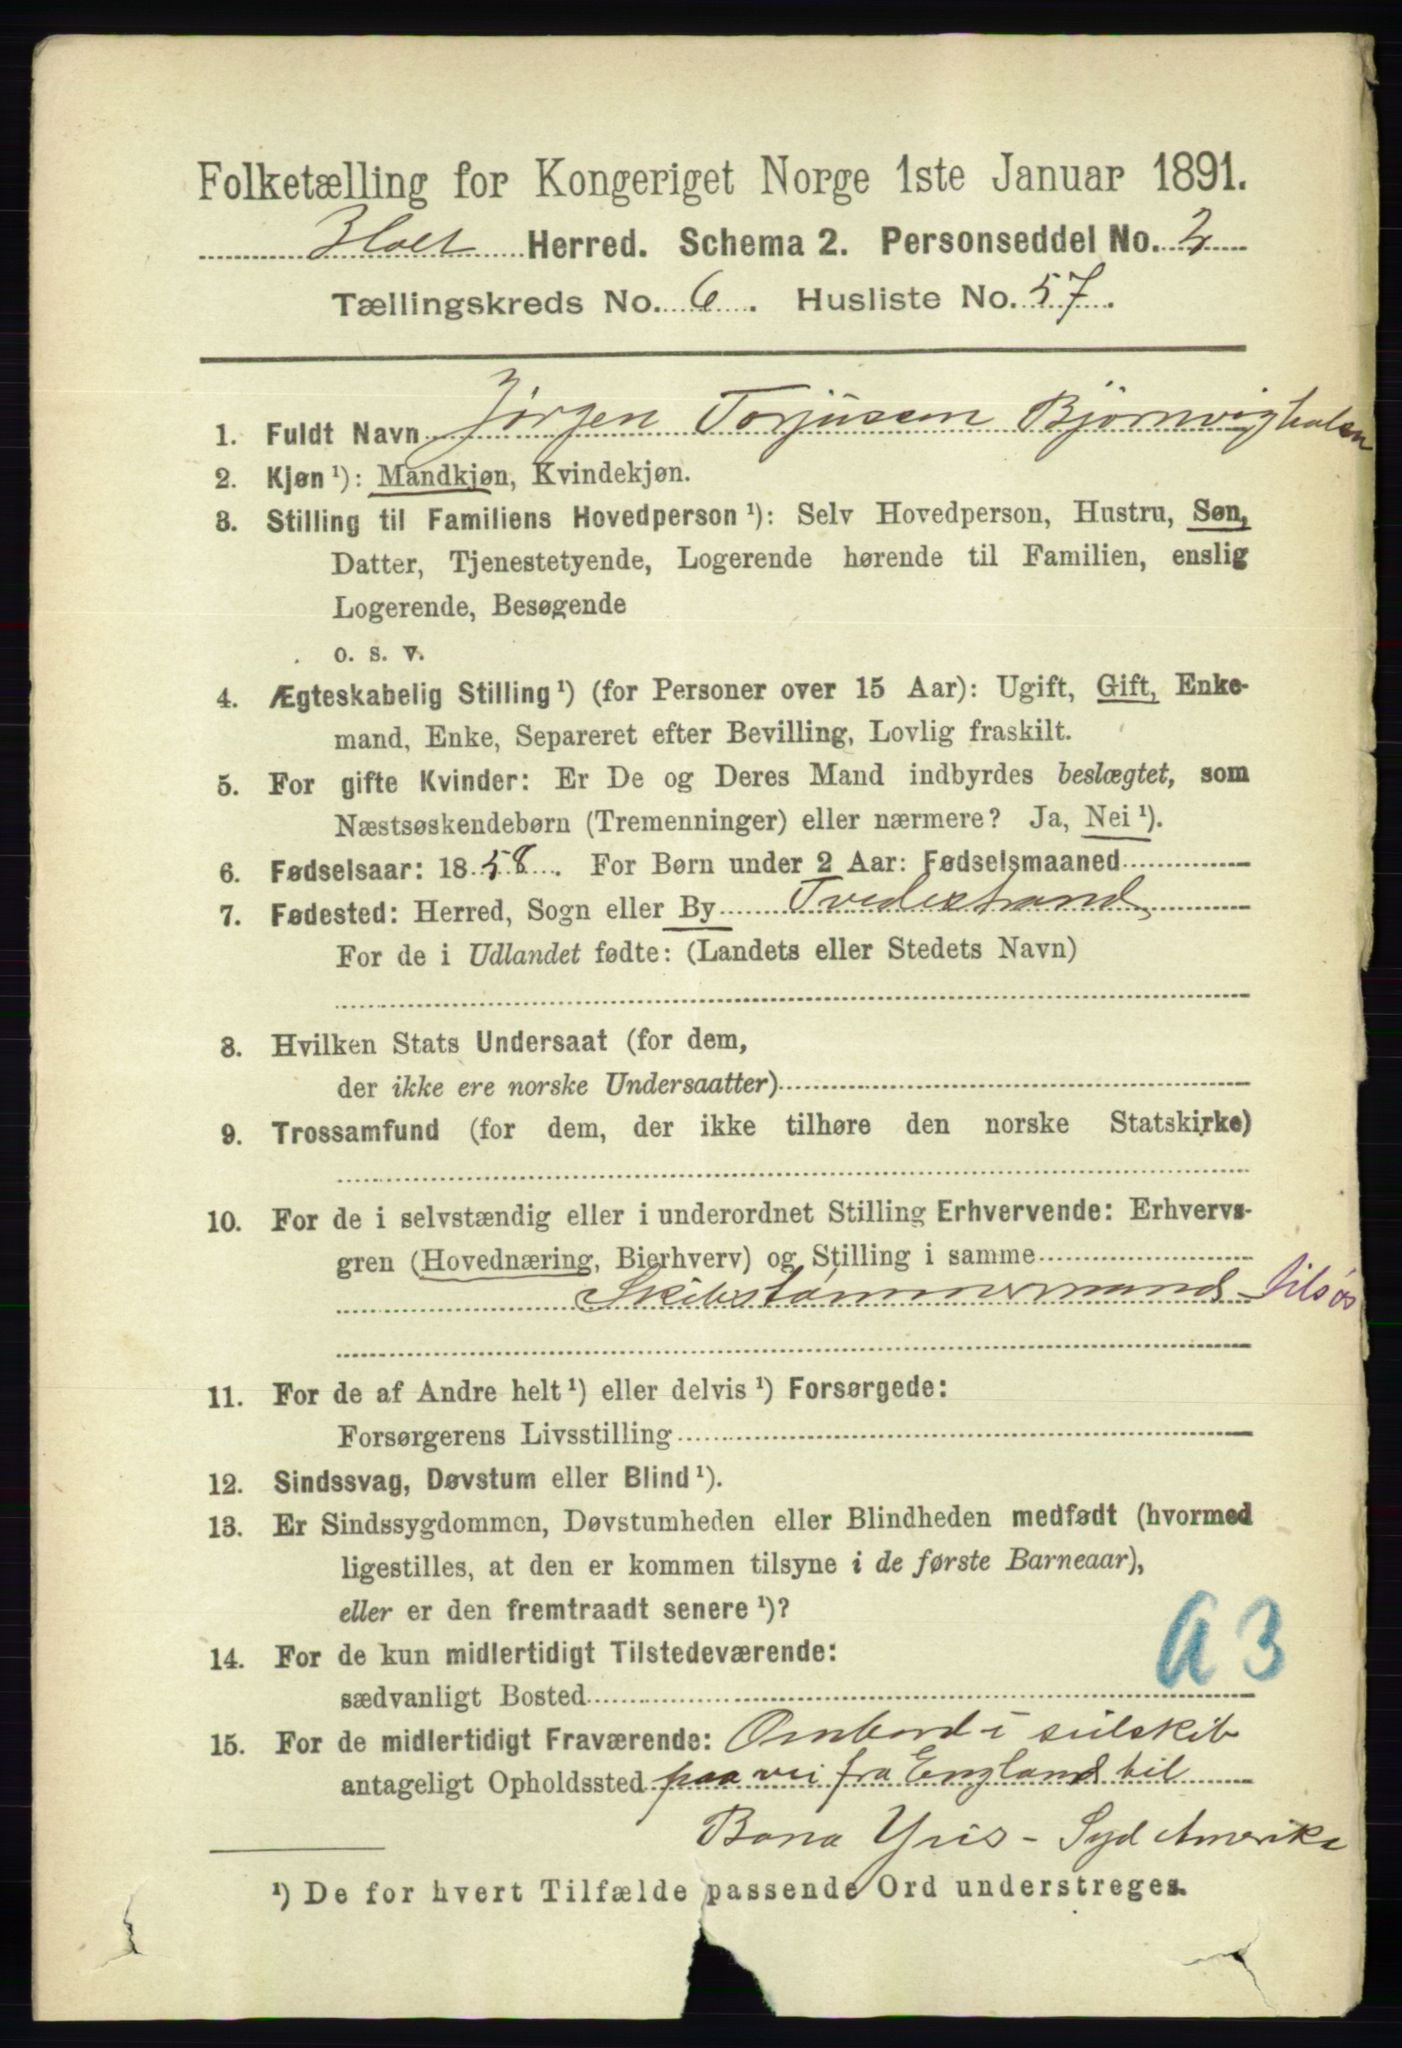 Folketælling for Kongeriget Norge 1ste Januar 1891.
Holt Herred. Schema 2. Personseddel No. 2
Tællingskreds No. 6. Husliste No. 57.
1. Fuldt Navn Jörgen Torjussen Björnvigholsen
2. Kjøn ¹): Mandkjøn, Kvindekjøn.
3. Stilling til Familiens Hovedperson ¹): Selv Hovedperson, Hustru, Søn,
Datter, Tjenestetyende, Logerende hørende til Familien, enslig
Logerende, Besøgende
o. s. v.
4. Ægteskabelig Stilling ¹) (for Personer over 15 Aar): Ugift, Gift, Enke-
mand, Enke, Separeret efter Bevilling, Lovlig fraskilt.
5. For gifte Kvinder: Er De og Deres Mand indbyrdes beslægtet, som
Næstsøskendebørn (Tremenninger) eller nærmere? Ja, Nei ¹).
6. Fødselsaar: 1858. For Børn under 2 Aar: Fødselsmaaned
7. Fødested: Herred, Sogn eller By Tvedestrand
For de i Udlandet fødte: (Landets eller Stedets Navn)
8. Hvilken Stats Undersaat (for dem,
der ikke ere norske Undersaatter)
9. Trossamfund (for dem, der ikke tilhøre den norske Statskirke)
10. For de i selvstændig eller i underordnet Stilling Erhvervende: Erhvervs-
gren (Hovednæring, Bierhverv) og Stilling i samme
Skibstömmermand tilsøs
11. For de af Andre helt ¹) eller delvis ¹) Forsørgede:
Forsørgerens Livsstilling
12. Sindssvag, Døvstum eller Blind ¹).
13. Er Sindssygdommen, Døvstumheden eller Blindheden medfødt (hvormed
ligestilles, at den er kommen tilsyne i de første Barneaar),
eller er den fremtraadt senere ¹)?
a 3
14. For de kun midlertidigt Tilstedeværende:
sædvanligt Bosted
15. For de midlertidigt Fraværende: Ombord i seilskib
antageligt Opholdssted paa vei fra England til
Bona Yris - Syd Amerika
¹) De for hvert Tilfælde passende Ord understreges.